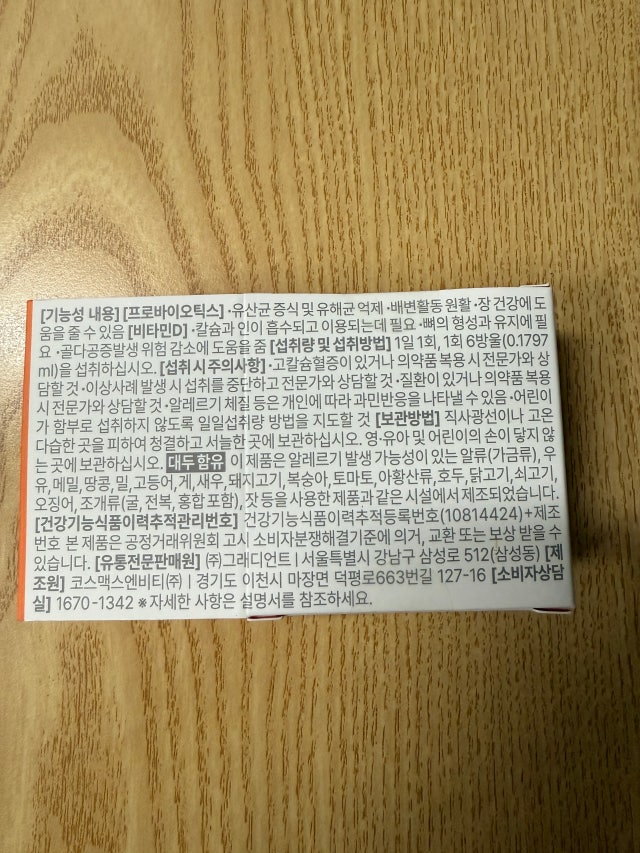 [기능성 내용] [프로바이오틱스] ·유산균 증식 및 유해균 억제 ·배변활동 원활 ·장 건강에 도
움을 줄 수 있음 [비타민D] ·칼슘과 인이 흡수되고 이용되는데 필요 ·뼈의 형성과 유지에 필
요 ·골다공증발생 위험 감소에 도움을 줌 [섭취량 및 섭취방법] 1일 1회, 1회 6방울(0.1797
ml)을 섭취하십시오. [섭취 시 주의사항] ·고칼슘혈증이 있거나 의약품 복용 시 전문가와 상
담할 것 ·이상사례 발생 시 섭취를 중단하고 전문가와 상담할 것 ·질환이 있거나 의약품 복용
시 전문가와 상담할 것 ·알레르기 체질 등은 개인에 따라 과민반응을 나타낼 수 있음 ·어린이
가 함부로 섭취하지 않도록 일일섭취량 방법을 지도할 것 [보관방법] 직사광선이나 고온
다습한 곳을 피하여 청결하고 서늘한 곳에 보관하십시오. 영·유아 및 어린이의 손이 닿지 않
는 곳에 보관하십시오. 대두 함유 이 제품은 알레르기 발생 가능성이 있는 알류(가금류), 우
유, 메밀, 땅콩, 밀, 고등어, 게, 새우, 돼지고기, 복숭아, 토마토, 아황산류, 호두, 닭고기, 쇠고기,
오징어, 조개류(굴, 전복, 홍합 포함), 잣 등을 사용한 제품과 같은 시설에서 제조되었습니다.
[건강기능식품이력추적관리번호] 건강기능식품이력추적등록번호(10814424)+제조
번호 본 제품은 공정거래위원회 고시 소비자분쟁해결기준에 의거, 교환 또는 보상 받을 수
있습니다. [유통전문판매원] ㈜그래디언트 | 서울특별시 강남구 삼성로 512(삼성동) [제
조원] 코스맥스엔비티㈜ | 경기도 이천시 마장면 덕평로663번길 127-16 [소비자상담
실] 1670-1342 ※자세한 사항은 설명서를 참조하세요.